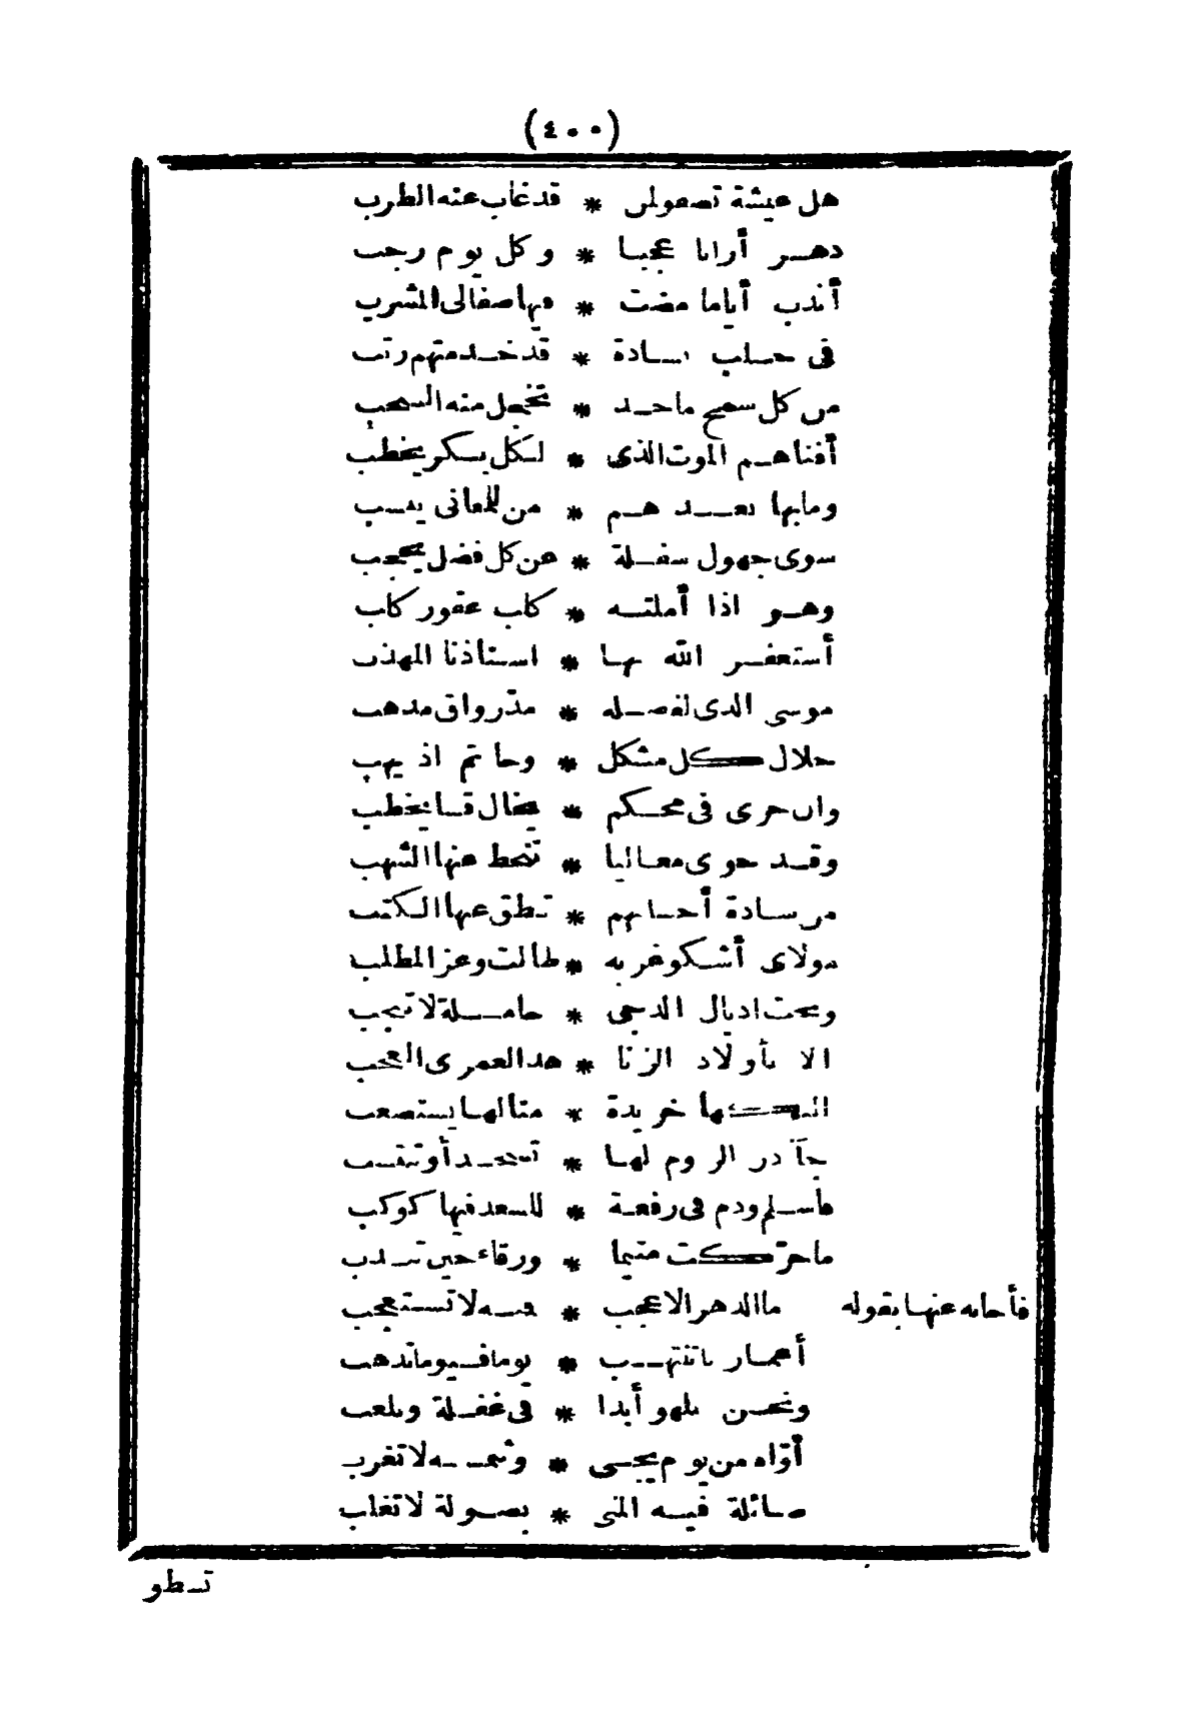 (٤٠٠)
هل عيشة تصفو لمن * قد غاب عنه الطرب
دهر أرانا عجبا * وكل يوم رجب
أندب أياما مضت * فيها صفا لى المشرب
فى حلب بسادة * قد خدمتهم رتب
من كل سمح ماجد * تخجل منه السحب
أفناهم الموت الذى * لكل بكر يخطب
وما بها بعدهم * من للمعانى ينسب
سوى جهول سفلة * عن كل فضل يحجب
وهو اذا أملته * كلب عقور كلب
أستغفر الله بها * استاذنا المهذب
موسى الذى لفضله * مدّرواق مذهب
حلال كل مشكل * وحاتم اذ يهب
وان جرى فى محكم * فقال قسا يخطب
وقد حوى معاليا * تنحط عنها الشهب
من سادة أحسابهم * تنطق عنها الكتب
مولاى أشكو غربة * طالت وعز المطلب
وبحت اذيال الدجى * حاملة لا تنجب
الا بأولاد الزنا * هذا لعمرى العجب
اليكها خريدة * مثالها يستصعب
جآذر الروم لها * تسجد أو تنتسب
فاسلم ودم فى رفعة * للسعد فيها كوكب
ما حرّكت متيما * ورقاء حين تندب
فأجابه عنها بقوله ما الدهر الا عجب * فمنه لا تستعجب
أعمارنا تنتهب * يوما فيوما تذهب
ونحن نلهو أبدا * فى غفلة ونلعب
أوّاه من يوم يجى * وشمسه لا تغرب
صائلة فيه المنى * بصولة لا تغلب
تسطو